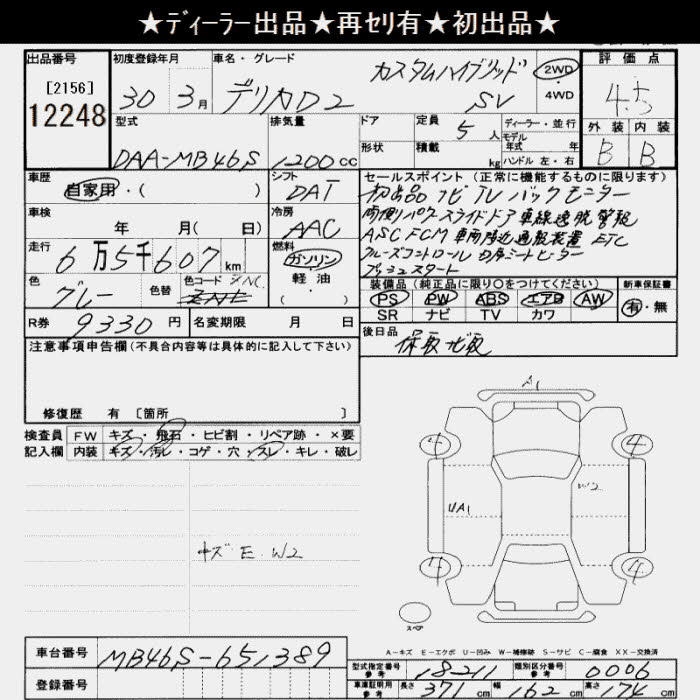 ★ディーラー出品★再セリ有★初出品★
出品番号 初度登録年月 車名・グレード 評価点
[2156] 30年 3月 デリカD2 カスタムハイブリッド SV 2WD 4WD 4.5
12248
型式 排気量 ドア 定員 5人 ディーラー・並行 外装 内装
DAA-MB46S 1200cc 形状 積載 kg モデル年式 年 ハンドル 左・右 B B
車歴 シフト セールスポイント (正常に機能するものに限ります)
自家用・( ) DAT 初出品 ナビ TV バックモニター
車検 冷房 両側パワースライドドア 車線逸脱警報
年 月( 日) AAC ASC FCM 車両接近通報装置 ETC
走行 燃料 クルーズコントロール シートヒーター
6万5千607km ガソリン プッシュスタート
色 色替 色カラーコード 軽油 装備品 (純正品に限り○をつけてください) 新車保証書
グレー ZNC ( ) PS PW ABS エアB AW 有・無
SR ナビ TV カワ
R券 9330円 名変期限 月 日 後日品
保取 ナビ取
注意事項申告欄 (不具合内容等は具体的に記入して下さい)
修復歴 有 [箇所 ]
検査員 FW キズ・飛石・ヒビ割・リペア跡・×要
記入欄 内装 キズ・汚レ・コゲ・穴・スレ・キレ・破レ
A1
4 4
W2
UA1
キズ E. W2
4 4
スペア
A-キズ E-エクボ U-凹み W-補修跡 S-サビ C-腐食 XX-交換済
車台番号 MB46S-651389 型式指定番号 参考 18211 類別区分番号 参考 0006
登録番号 車庫証明用 参考 長さ 371cm 幅 162cm 高さ 174cm